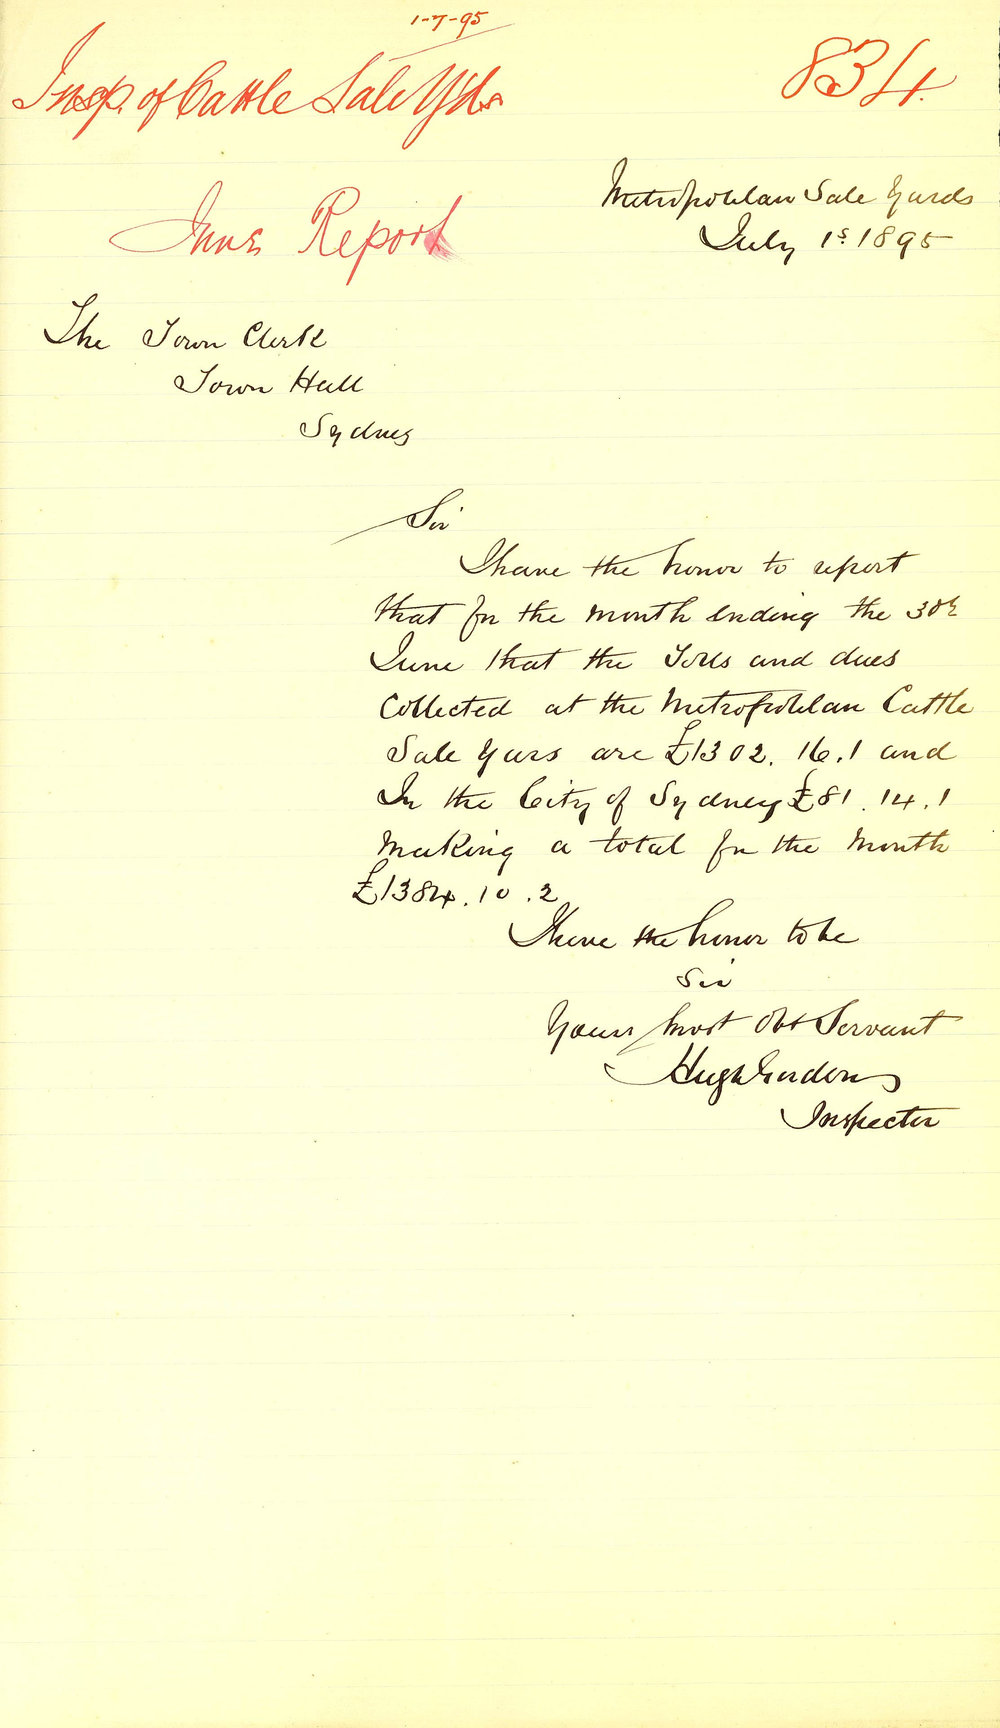 1-7-95
Insp. of Cattle Sale Yds
834.
June Report
Metropolitan Sale Yards
July 1st 1895
The Town Clerk
Town Hall
Sydney
Sir
I have the honor to report
that for the month ending the 30th
June that the Tolls and dues
Collected at the Metropolitan Cattle
Sale Yars are £1302. 16. 1 and
In the City of Sydney £81. 14. 1
making a total for the Month
£1384. 10. 2
I have the honor to be
Sir
Yours most Obt Servant
Hugh Gordon
Inspector